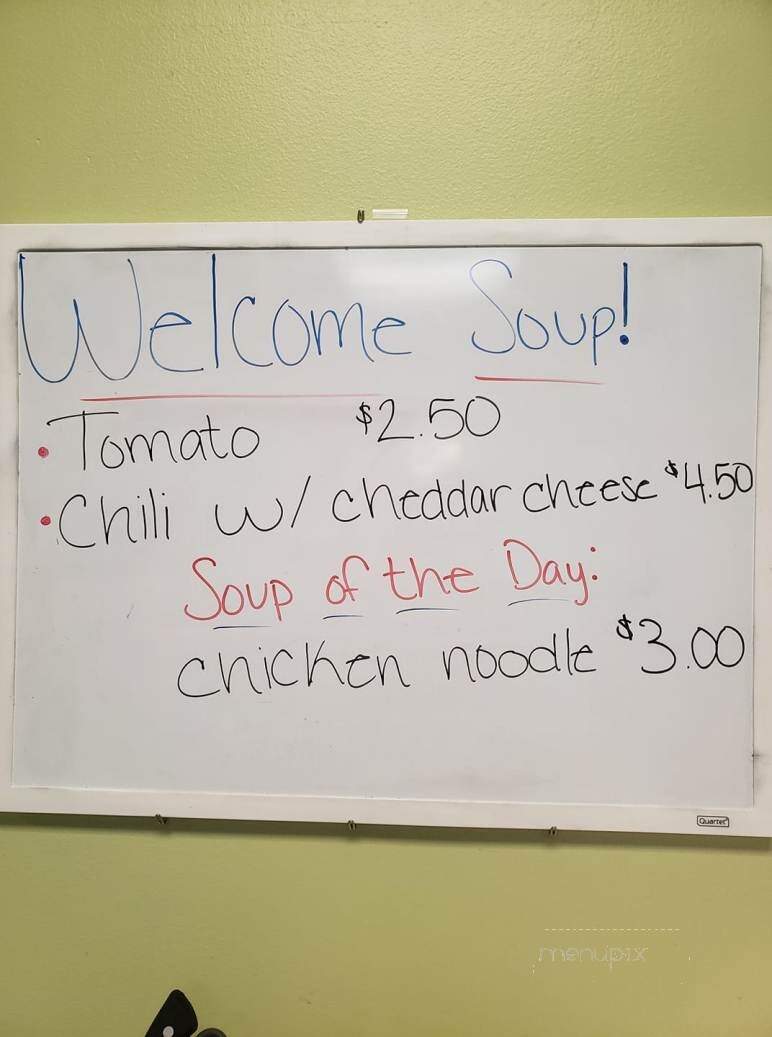 Welcome Soup!
• Tomato $2.50
• Chili w/ cheddar cheese $4.50
Soup of the Day:
chicken noodle $3.00
Quartet
menupix